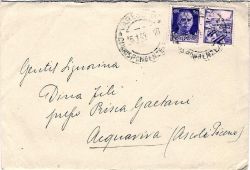 Gentil Signorina
Dina Fili
presso Prisca Gaetani
Acquaviva (Ascoli Piceno)